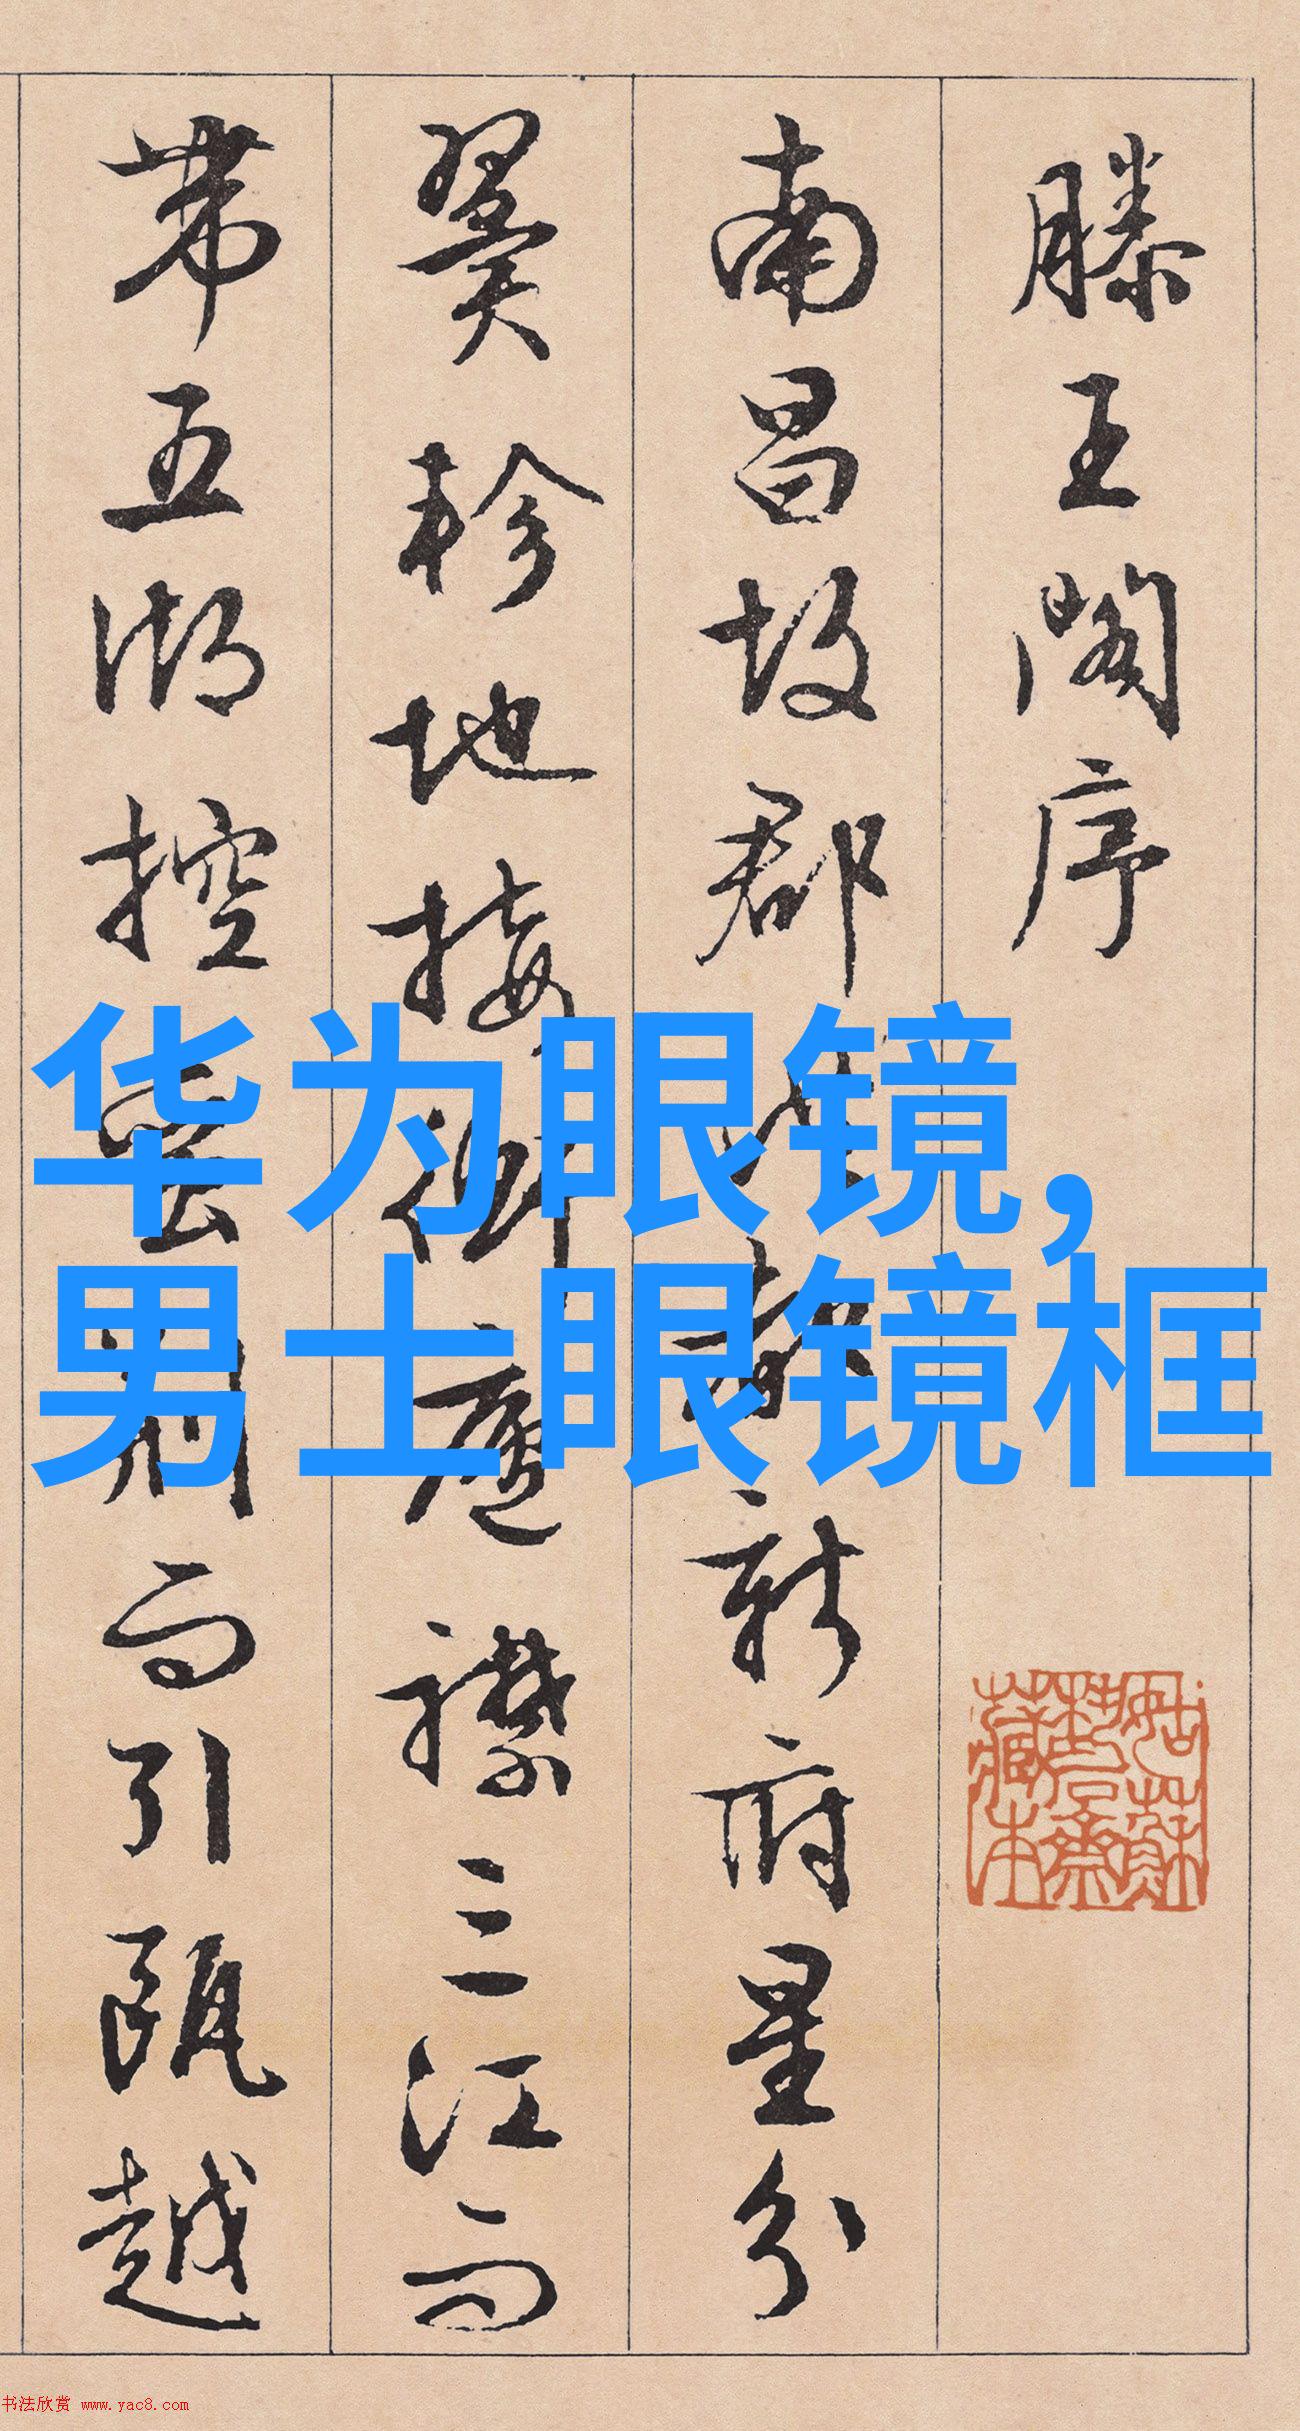 滕王閣序
南昌故郡洪都新府星分
翼軫地接衡廬襟三江而
帶五湖控蠻荊而引甌越
华为眼镜,
男士眼镜框
书法欣赏 www.yac8.com